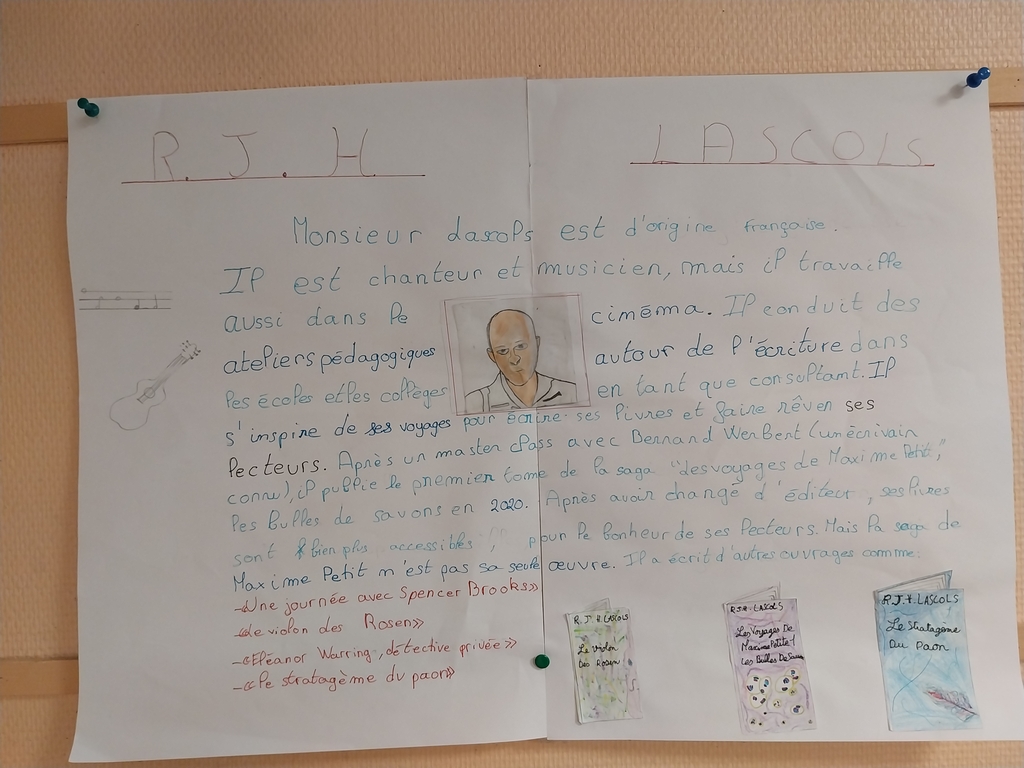 R. J. H. LASCOLS
Monsieur Lascols est d'origine française.
Il est chanteur et musicien, mais il travaille
aussi dans le cinéma. Il conduit des
ateliers pédagogiques autour de l'écriture dans
les écoles et les collèges en tant que consultant. Il
s'inspire de ses voyages pour écrire ses livres et faire rêver ses
lecteurs. Après un master class avec Bernard Werbert (un écrivain
connu), il publie le premier tome de la saga "des voyages de Maxime Petit,"
les bulles de savons en 2020. Après avoir changé d'éditeur, ses livres
sont bien plus accessibles, pour le bonheur de ses lecteurs. Mais la saga de
Maxime Petit n'est pas sa seule œuvre. Il a écrit d'autres ouvrages comme:
-«Une journée avec Spencer Brooks»
-«Le violon des Rosen»
-«Eléanor Warring, détective privée»
-«le stratagème du paon»
R. J. H. LASCOLS
Le violon
Des Rosen
R.J.H. LASCOLS
Les Voyages De
Maxime Petit 1
Les Bulles De Savon
R.J.H. LASCOLS
Le Stratagème
Du Paon